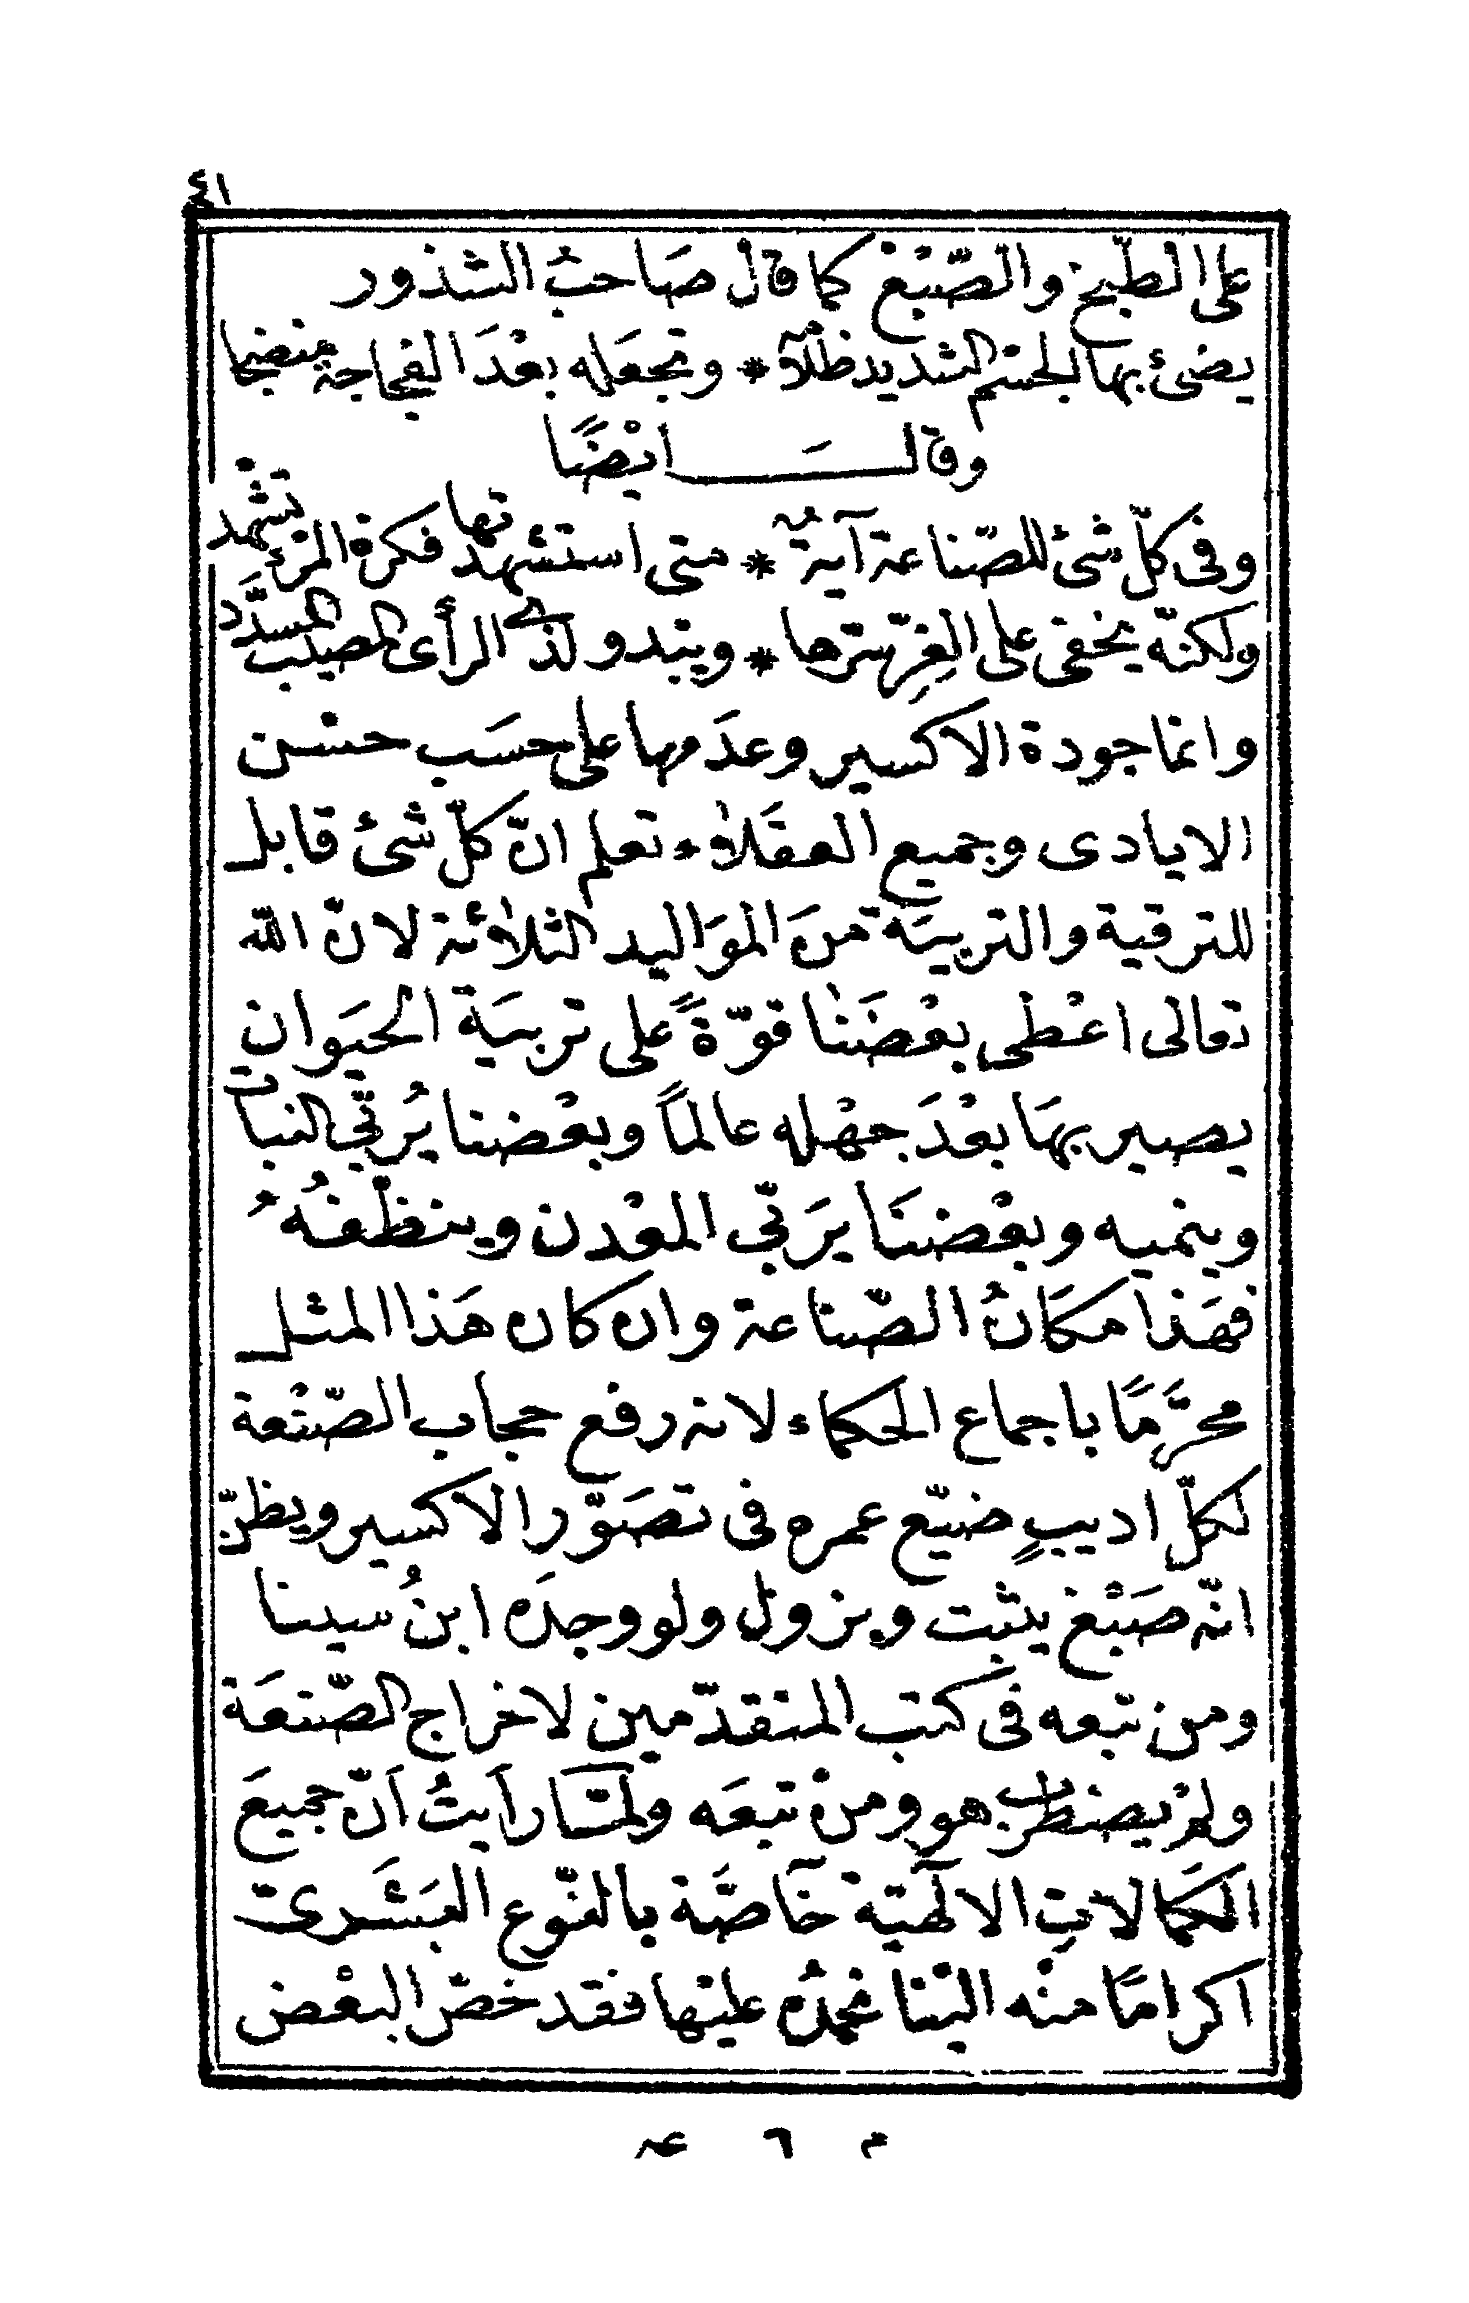 ٤١
على الطبخ والصّبْغ كما قال صَاحبُ الشذور
يضئ بها الجسْم الشديد ظلامُه * وتجعَله بعْدَ الفجاجة منضجا
وقالَ ايْضًا
وفى كلّ شئ للصّناعة آيةٌ * متى استشهدتها فكرة المرْءِ تشْهد
ولكنّه يخفى على الغِرِّ سترها * ويبْدو لذى الرأى المصيب المسدّد
وانما جودة الاكسير وعدَمها على حسَب حسْن
الايادى وجميع العقَلاء تعلم انّ كلّ شئ قابل
للترقية والتربيَة منَ الموَاليد الثلاثة لانّ الله
تعالى اعْطى بعْضَنا قوّةً على تربيَة الحيَوانِ
يصير بهَا بعْدَ جهْله عالماً وبعْضنا يُربّي النبات
وينميه وبعْضنَا يرَبّي المعْدن وينظفُهُ
فهَذا مكَانُ الصّناعة وان كان هَذا المثل
محرَّمًا باجماع الحكماء لانه رفع حجاب الصّنْعة
لكلّ اديبٍ ضيّع عمره فى تصَوّر الاكسير ويظنّ
انّه صَبْغ يثبت ويزول ولو وجدَه ابنُ سينا
ومن تبعه فى كتب المتقدّمين لاخراج الصّنعَة
ولمْ يصنطرب هو ومنْ تبعَه ولمّا رأيتُ أنّ جميعَ
الكمالاتِ الالهيّة خاصّة بالنّوع البشَرىّ
اكرامًا منْه الينَا نحمدُه عليْها فقد خصّ البعْض
م ٦ عه